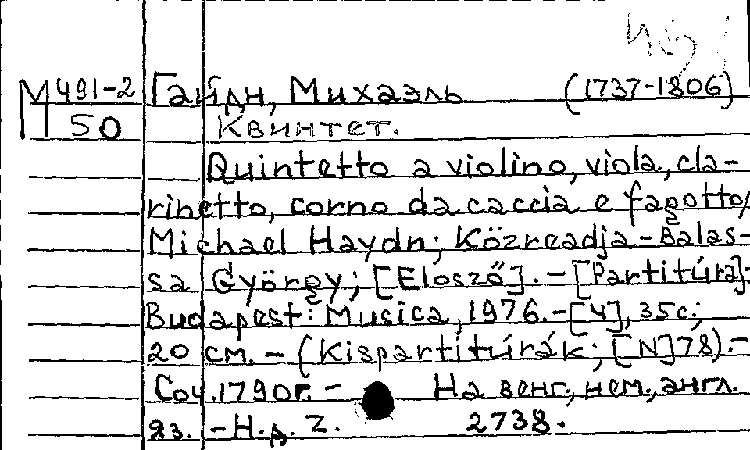 М491-2 Гайдн, Михаэль (1737-1806)
50 Квинтет.
Quintetto a violino, viola, cla-
rinetto, corno da caccia e fagotto/
Michael Haydn; Közreadja - Balas-
sa György; [Előszó]. - [Partitúra]-
Budapest: Musica, 1976. - [4], 35 с;
20 см. - (Kispartitúrák; [N]78).-
Соч. 1790г. - На венг., нем., англ.
яз. - Н.д. Z. 2738.